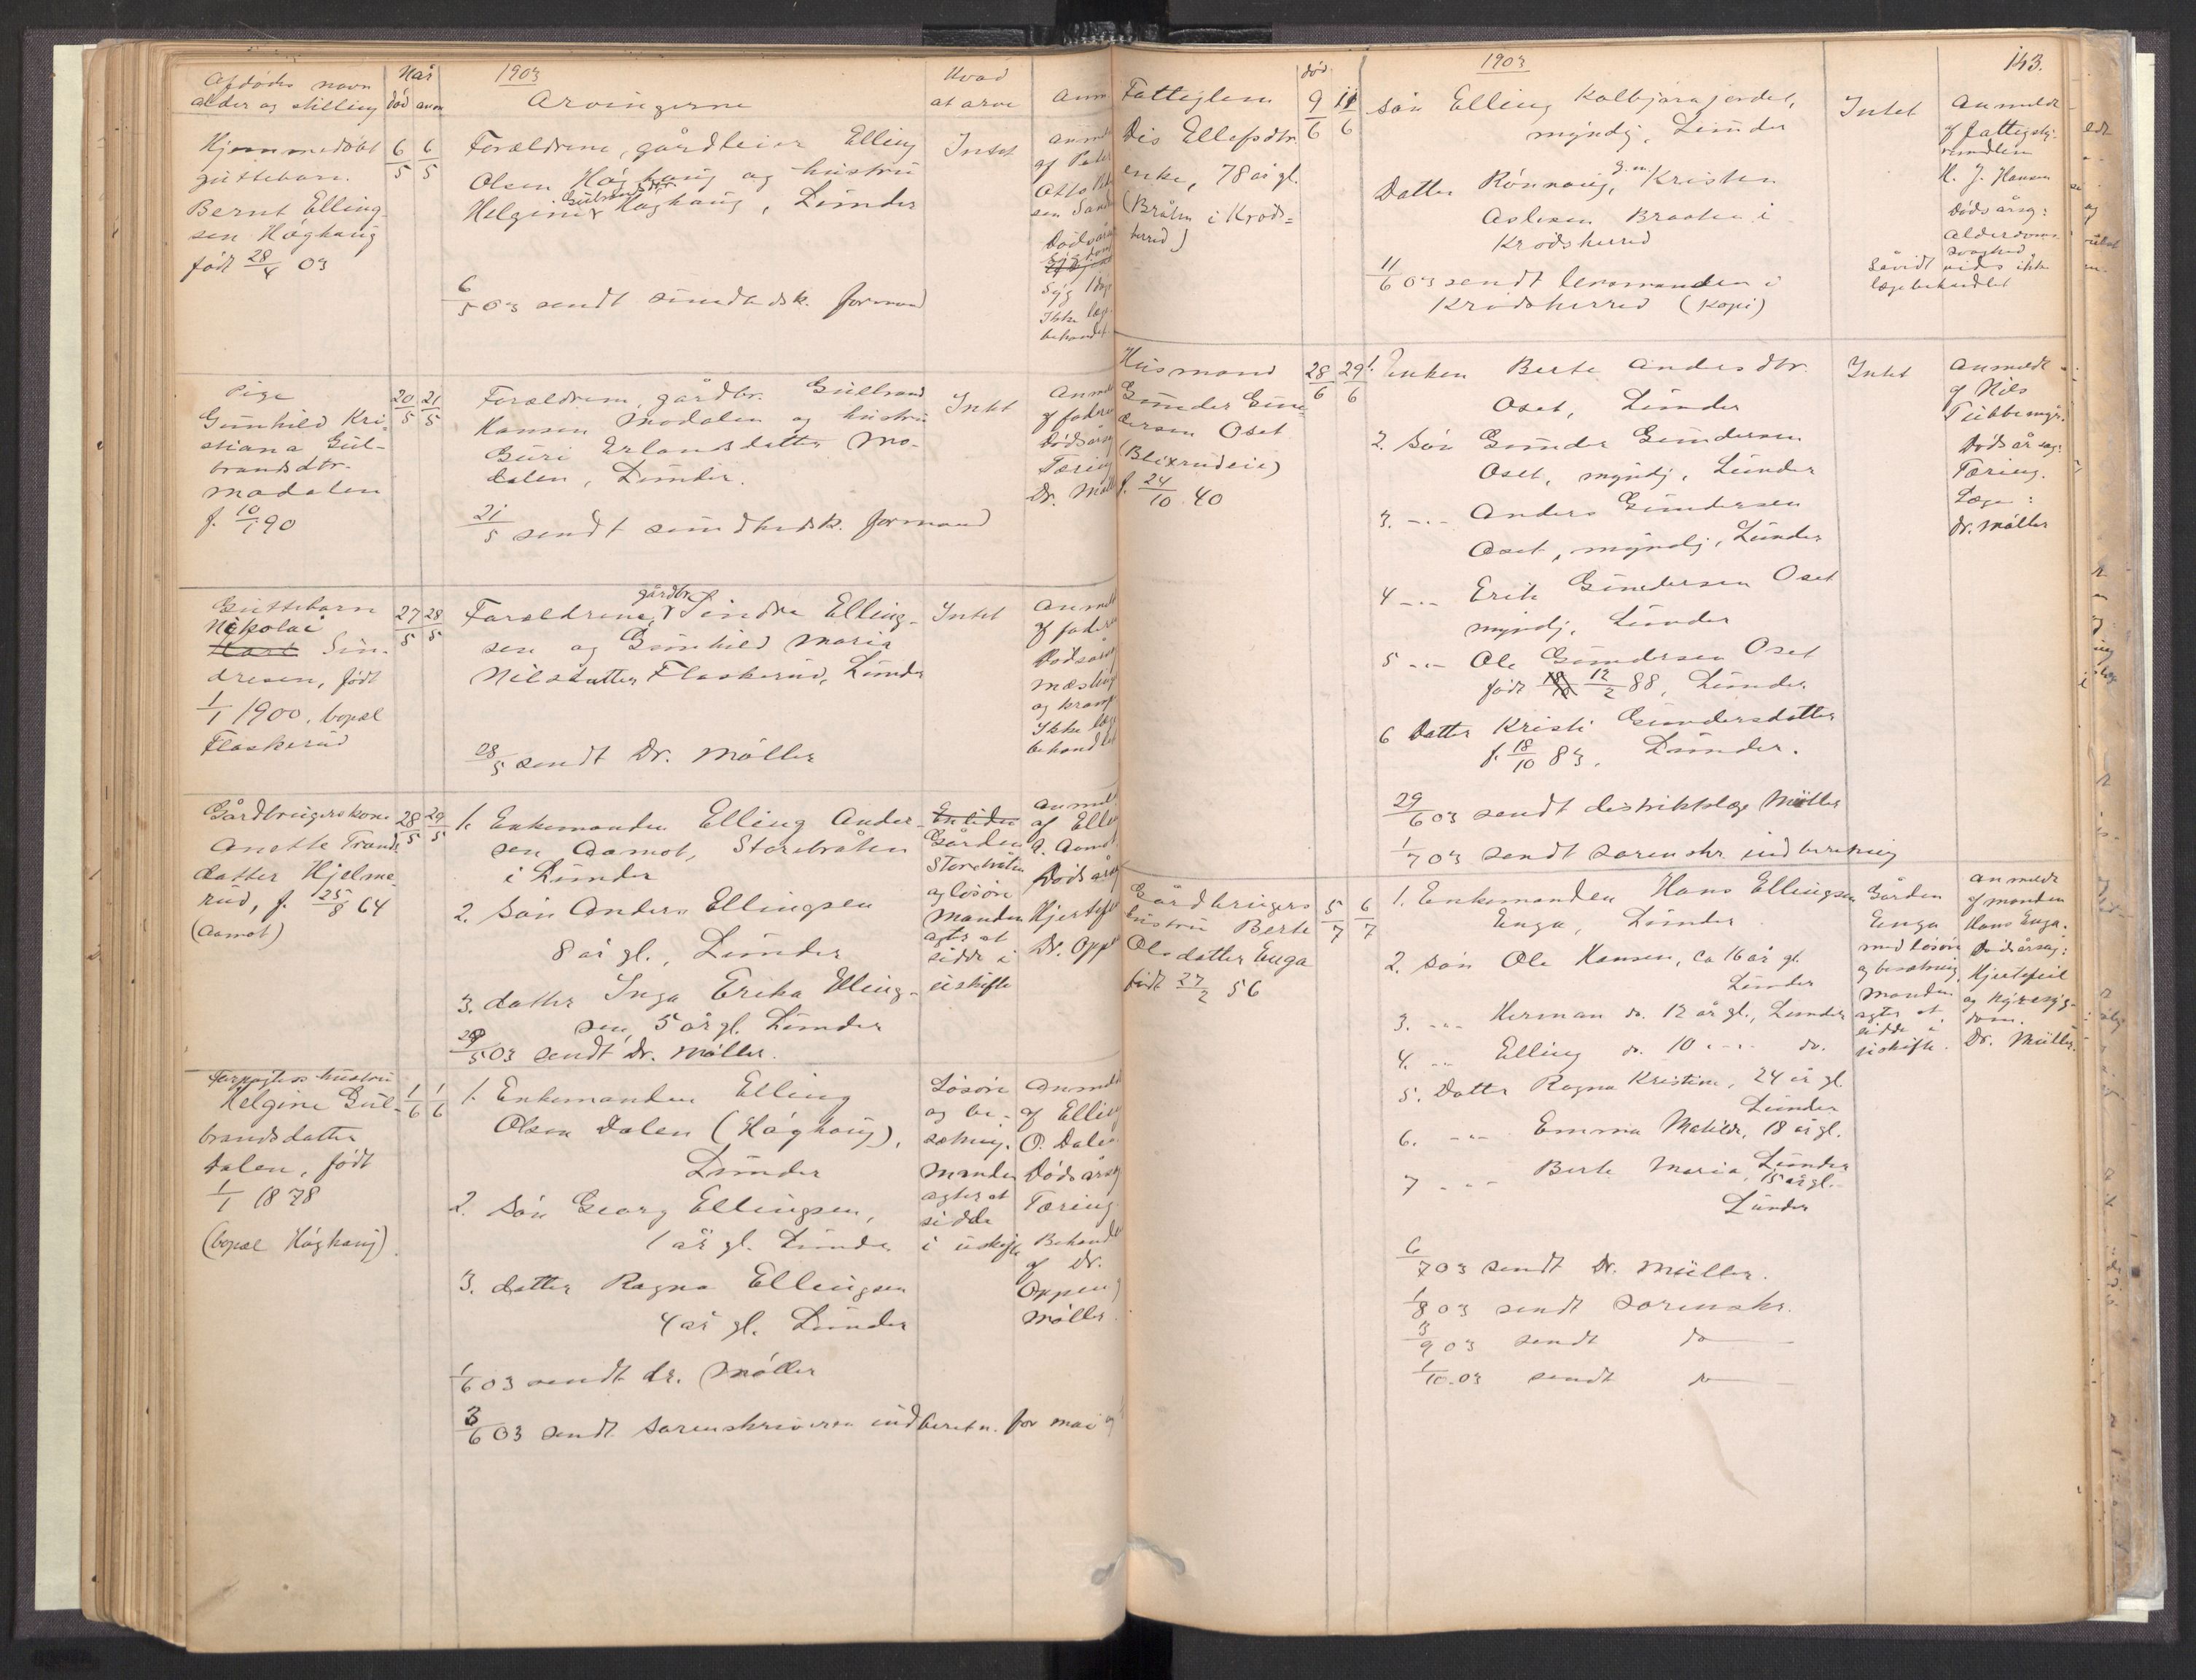 Afdødes navn
alder og stilling
Når
død anm
1903
Arvingerne
Hvad
at arve
Anm
Hjemmedøbt
guttebarn.
Bernt Elling-
sen Høghaug
født 28/4 03
6/5 6/5
Forældrene, gårdleier Elling
Olsen Høghaug og hustru
Gulbrandsdtr
Helgine Høghaug, Lunder
6/5 03 sendt sundhedsk. formand
Intet
Anm
af Peder
Otto
sen
Dødsårs
Syg
Ikke læg
behandl
Pige
Gunhild Kri-
stiana Gul-
brandsdtr.
Modalen
f. 10/1 90
20/5 21/5
Forældrene, gårdbr. Gulbrand
Hansen Modalen og hustru
Guri Erlandsdatter Mo-
dalen, Lunder.
21/5 sendt sundhedsk. formand
Intet
Anm
af fader
Dødsårs
Tæring
Dr. Møll
Guttebarn
Nikolai
Sin-
dresen, født
1/1 1900, bopæl
Flaskerud
27/5 28/5
gårdbr.
Forældrene, Sindre Elling-
sen og Gunhild Maria
Nilsdatter Flaskerud, Lunder
28/5 sendt Dr. Møller
Intet
Anm
af fader
Dødsårs
Mæsling
og kramp
Ikke læg
behandlet
Gårdbrugerskone
Anette Trond-
datter Hjelme-
rud, f. 25/8 64
(Aamot)
28/5 29/5
1. Enkemanden Elling Ander-
sen Aamot, Storebråten
i Lunder
2. Søn Anders Ellingsen
8 år gl., Lunder
3. datter Inga Erika Elling-
sen, 5 år gl. Lunder
29/5 03 sendt Dr. Møller.
Gården
Storebråten
og løsøre
Manden
agter at
sidde i
uskifte
Anmel
af Ellin
A. Aamot
Dødsårs
Hjertefe
Dr. Oppe
Forpagters hustru
Helgine Gul-
brandsdatter
Dalen, født
1/1 1878
(bopæl Høghaug)
1/6 1/6
1. Enkemanden Elling
Olsen Dalen (Høghaug),
Lunder
2. Søn Georg Ellingsen,
1 år gl. Lunder
3. datter Ragna Ellingsen
4 år gl. Lunder
1/6 03 sendt dr. Møller
3/6 03 sendt sorenskriveren indberetn. for mai
Løsøre
og be-
sætning.
Manden
agter at
sidde
i uskifte
Anmeldt
af Elling
O. Dalen
Dødsårs
Tæring
Behandl
af Dr.
Oppen
Møller
1903
143.
Fattiglem
Dis Ellefsdtr.
enke, 78 år gl.
(Bråten i Kröds-
herred)
død
9/6 11/6
Søn Elling Kolbjørnjordet,
myndig, Lunder
g.m.
Datter Rönnaug, Kristen
Aslesen Braaten i
Krödsherred
11/6 03 sendt lensmanden i
Krödsherred (Kopi)
Intet
Anmeldt
af fattigsty-
remedlem
H. J. Hansen
Dødsårsag:
Alderdoms-
svaghed,
Såvidt vides ikke
lægebehandlet
Husmand
Gunder Gun-
dersen Oset
(Blixrudeie)
f. 24/10 40
28/6 29/6
1. Enken Berte Andersdtr.
Oset, Lunder
2. Søn Gunder Gundersen
Oset, myndig, Lunder
3. -"- Anders Gundersen
Oset, myndig, Lunder
4 -"- Erik Gundersen Oset
myndig, Lunder
5 -"- Ole Gundersen Oset
født 12/2 88, Lunder
6 Datter Kristi Gundersdatter
f. 18/10 83, Lunder.
29/6 03 sendt distriktslæge Møller
1/7 03 sendt sorenskr. indberetning
Intet
Anmeldt
af Nils
Tubbemyr.
Dødsårsag:
Tæring.
Læge:
Dr. Møller
Gårdbrugers
hustru Berte
Olsdatter Enga
født 27/2 56
5/7 6/7
1. Enkemanden Hans Ellingsen
Enga, Lunder
2. Søn Ole Hansen, ca 16 år gl.
Lunder
3. -"- Herman do. 12 år gl., Lunder
4. -"- Elling do. 10 -"- do.
5. Datter Ragna Kristine, 24 år gl.
Lunder
6. -"- Emma Matilde, 18 år gl.
Lunder
7 -"- Berte Maria, 15 år gl.
Lunder
6/7 03 sendt Dr. Müller.
1/8 03 sendt sorenskr.
3/9 03 sendt do
1/10 03 sendt do
Gården
Enga
med løsøre
og besætning
Manden
agter at
sidde i
uskifte.
Anmeldt
af manden
Hans Enga.
Dødsårsag:
Hjertefeil
og Nyresyg-
dom.
Dr. Müller.